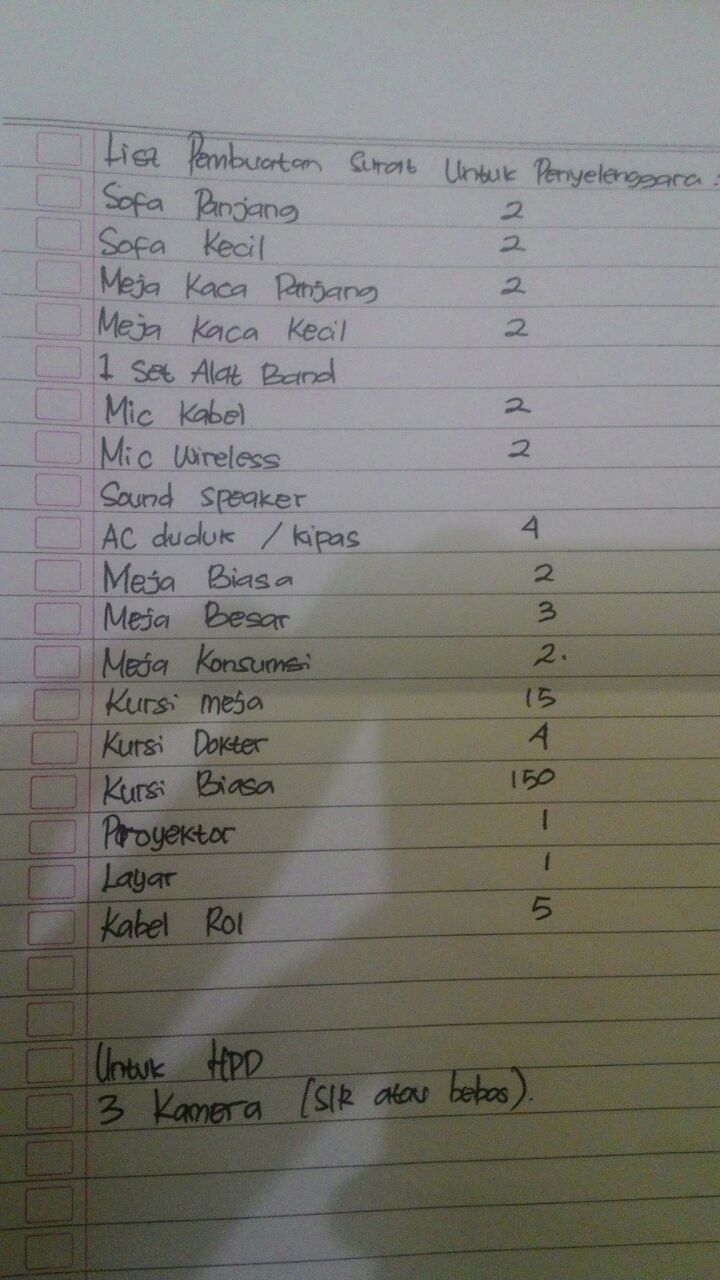 List Pembuatan Surat Untuk Penyelenggara :
Sofa Panjang 2
Sofa Kecil 2
Meja Kaca Panjang 2
Meja Kaca Kecil 2
1 Set Alat Band
Mic Kabel 2
Mic Wireless 2
Sound speaker
AC duduk / kipas 4
Meja Biasa 2
Meja Besar 3
Meja Konsumsi 2.
Kursi meja 15
Kursi Dokter 4
Kursi Biasa 150
Proyektor 1
Layar 1
Kabel Rol 5
Untuk HPD
3 Kamera (SlR atau bebas).